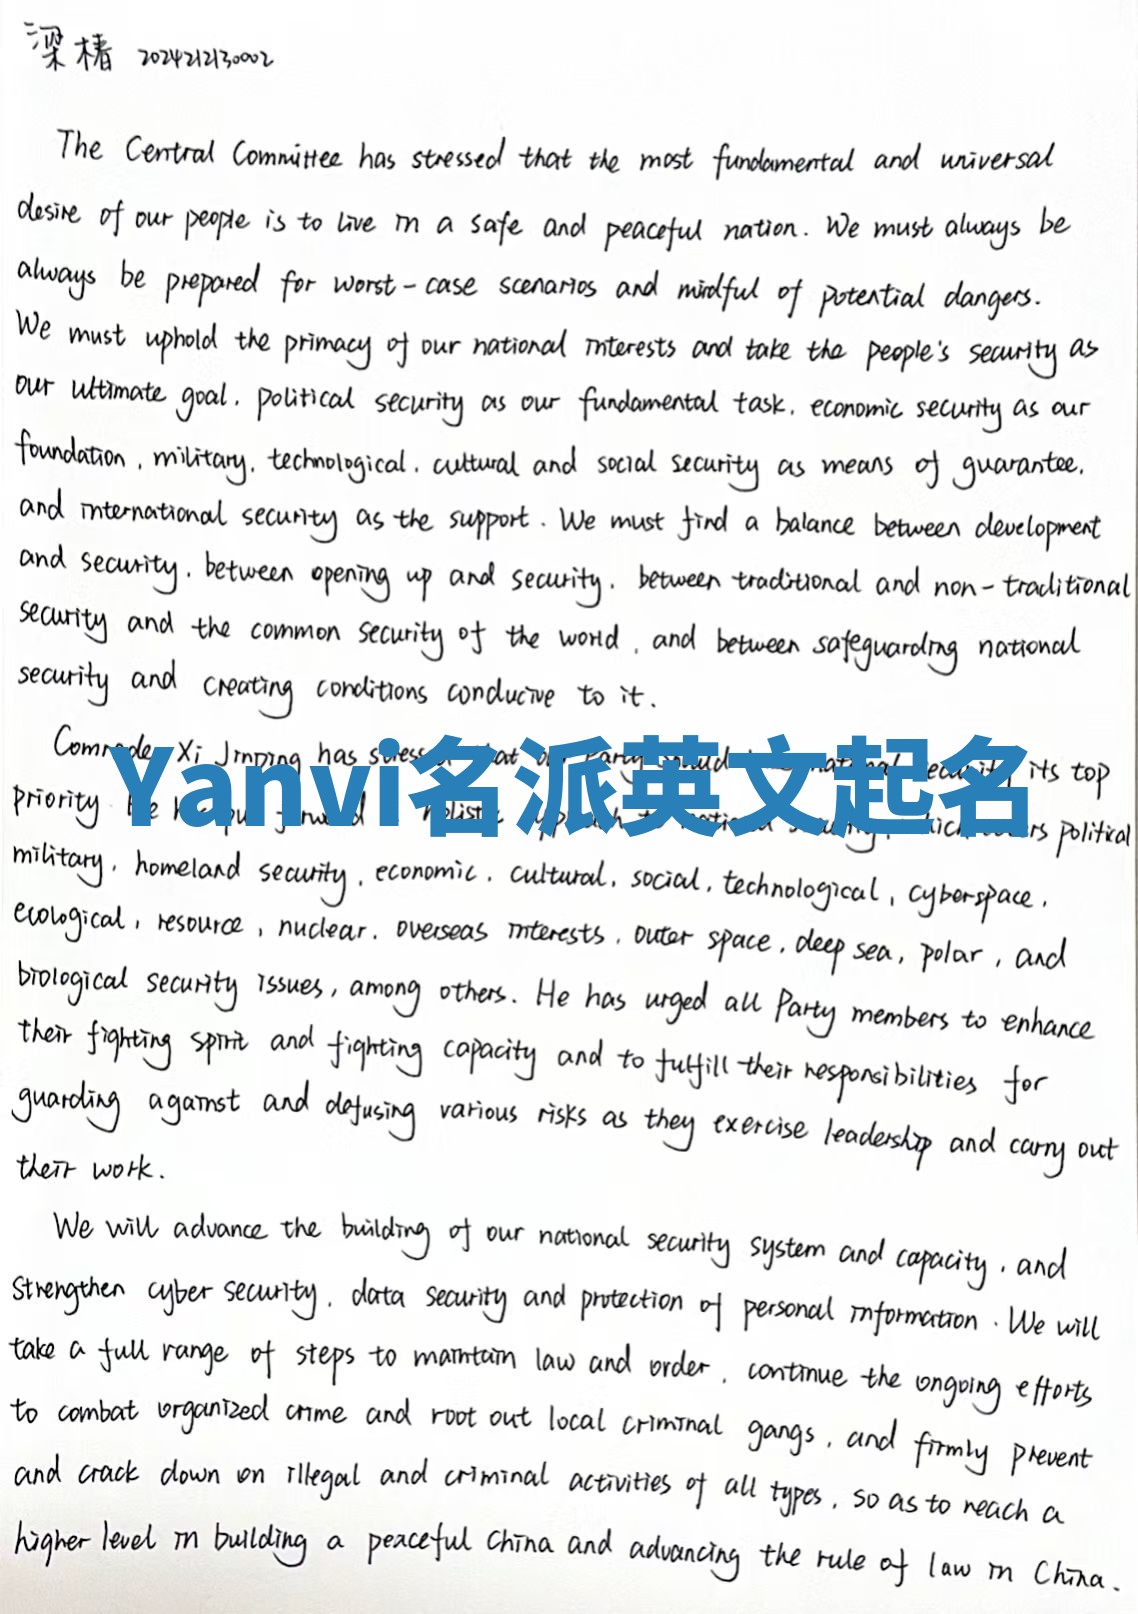 梁椿 2024212130002
The Central Committee has stressed that the most fundamental and universal
desire of our people is to live in a safe and peaceful nation. We must always be
always be prepared for worst-case scenarios and mindful of potential dangers.
We must uphold the primacy of our national interests and take the people's security as
our ultimate goal, political security as our fundamental task, economic security as our
foundation, military, technological, cultural and social security as means of guarantee,
and international security as the support. We must find a balance between development
and security, between opening up and security, between traditional and non-traditional
security and the common security of the world, and between safeguarding national
security and creating conditions conducive to it.
Comrade Xi Jinping has its top
Yanvi名派英文起名
priority political
military, homeland security, economic, cultural, social, technological, cyberspace,
ecological, resource, nuclear, overseas interests, outer space, deep sea, polar, and
biological security issues, among others. He has urged all Party members to enhance
their fighting spirit and fighting capacity and to fulfill their responsibilities for
guarding against and defusing various risks as they exercise leadership and carry out
their work.
We will advance the building of our national security system and capacity, and
strengthen cyber security, data security and protection of personal information. We will
take a full range of steps to maintain law and order, continue the ongoing efforts
to combat organized crime and root out local criminal gangs, and firmly prevent
and crack down on illegal and criminal activities of all types, so as to reach a
higher level in building a peaceful China and advancing the rule of law in China.